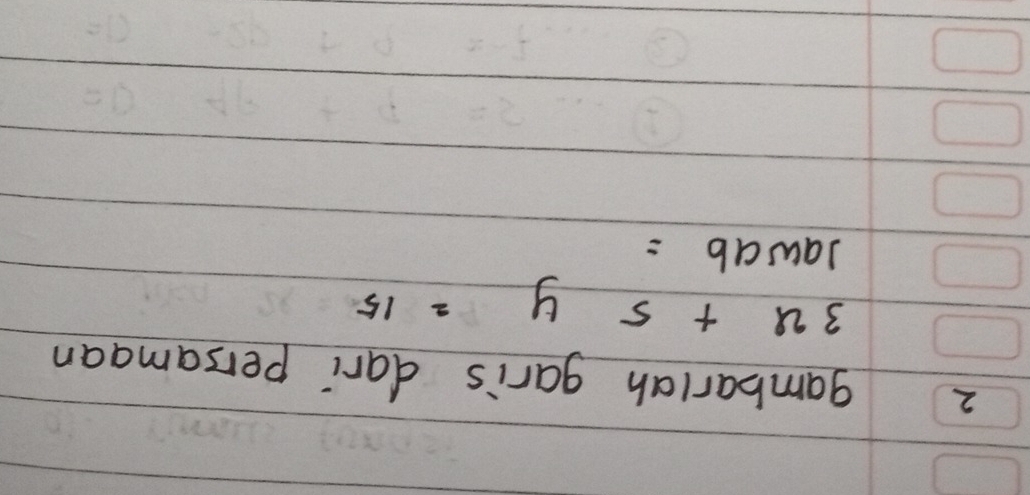 2 gambarlah garis dari persamaan
3x + 5 y = 15
Jawab =